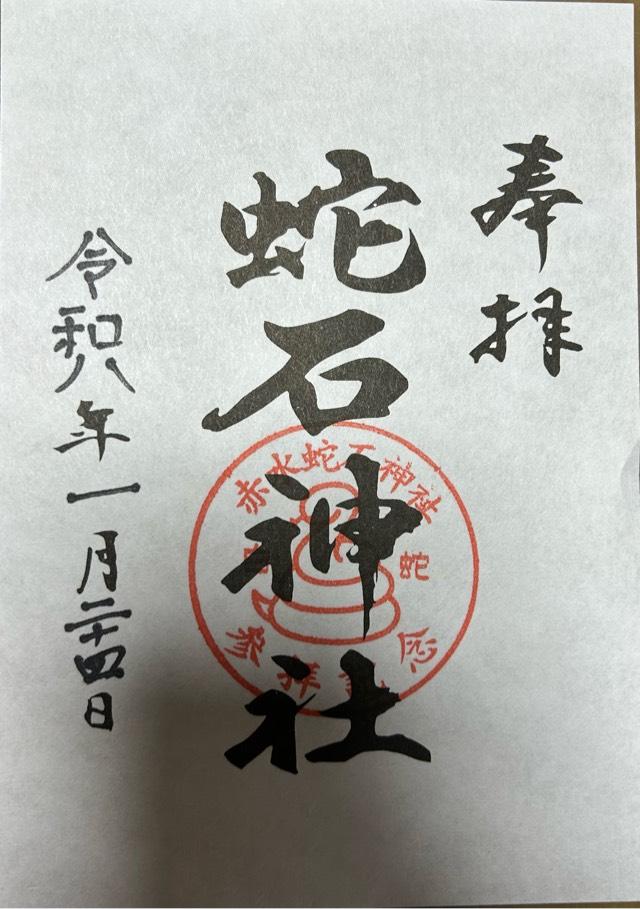 奉拝
蛇石神社
令和八年一月二十四日
赤水蛇石神社
蛇
参拝 念